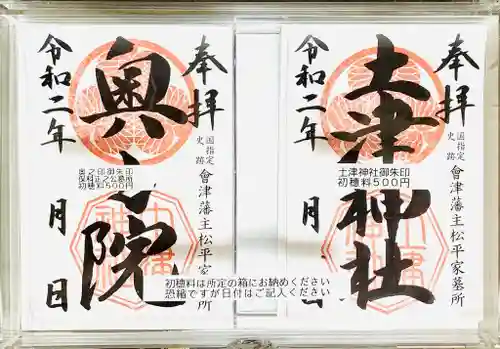 奉拝
土津神社
令和二年
月
日
国指定
史跡
會津藩主松平家墓所
土津神社御朱印
初穂料500円
奉拝
奥
院
令和二年
月
日
国指定
史跡
會津藩主松平家
所
奥之印御朱印
保科正之公墓所
初穂料500円
初穂料は所定の箱にお納めください
恐縮ですが日付はご記入ください